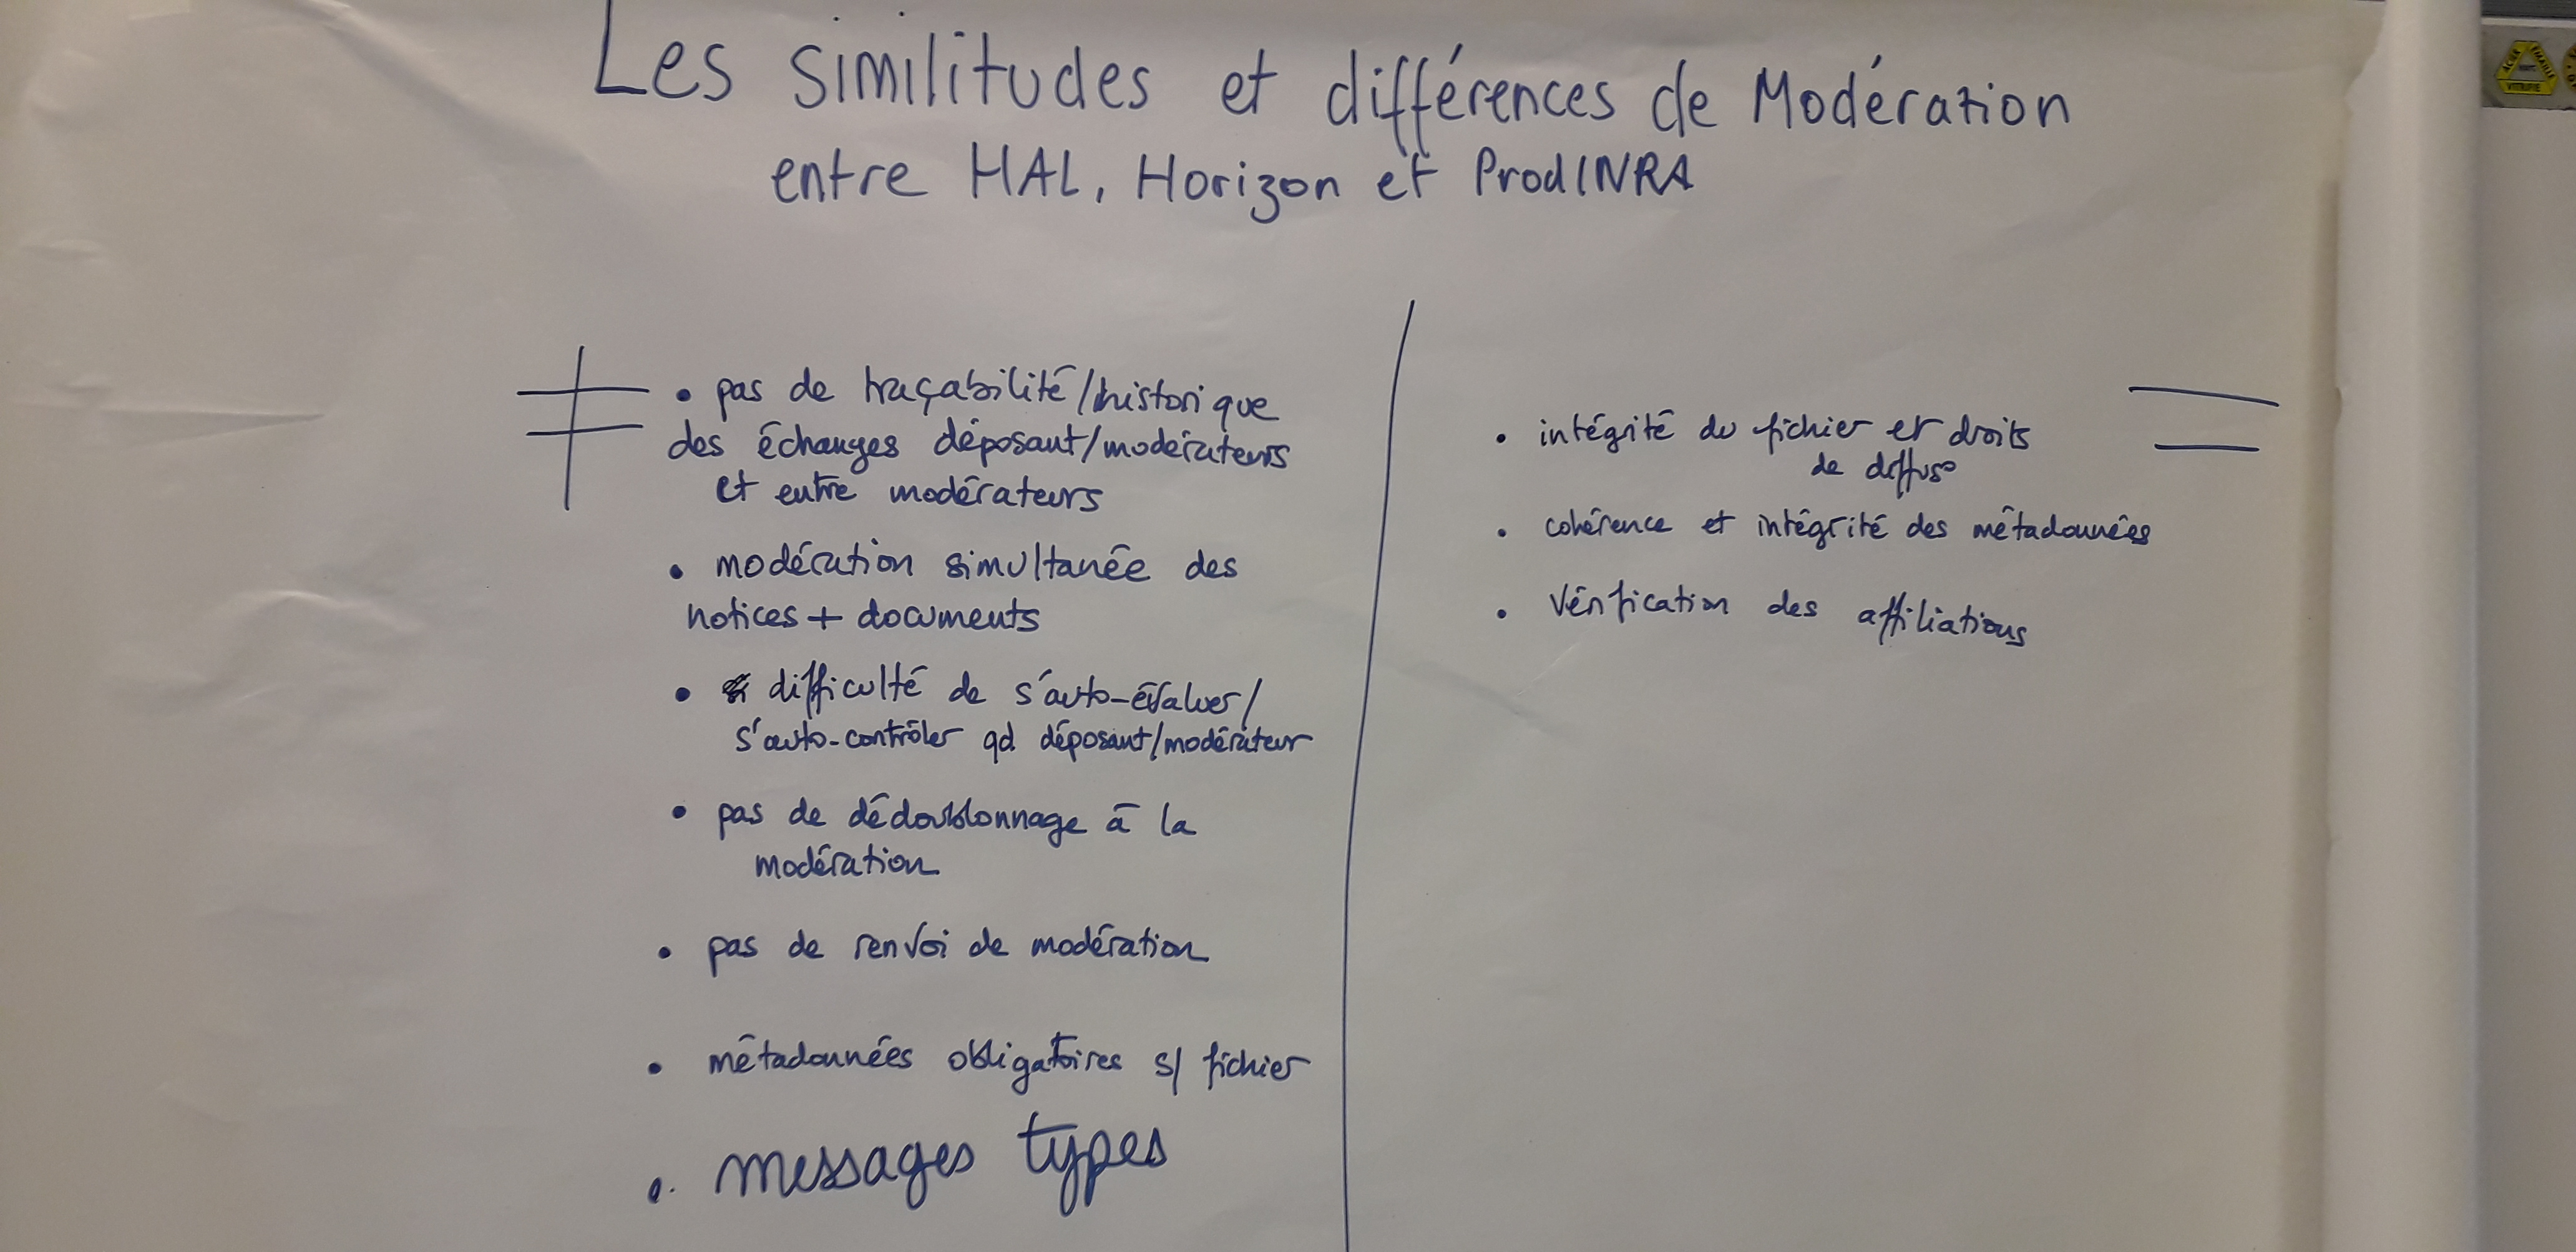 Les similitudes et différences de Modération
entre HAL, Horizon et ProdINRA
≠
• pas de traçabilité/historique
des échanges déposant/modérateurs
et entre modérateurs
• modération simultanée des
notices + documents
• difficulté de s'auto-évaluer/
s'auto-contrôler qd déposant/modérateur
• pas de dédoublonnage à la
modération
• pas de renvoi de modération
• métadonnées obligatoires s/ fichier
• messages types
=
• intégrité du fichier et droits
de diffus°
• cohérence et intégrité des métadonnées
• Vérification des affiliations
ACIER
EMAILLE
VITRIFIE